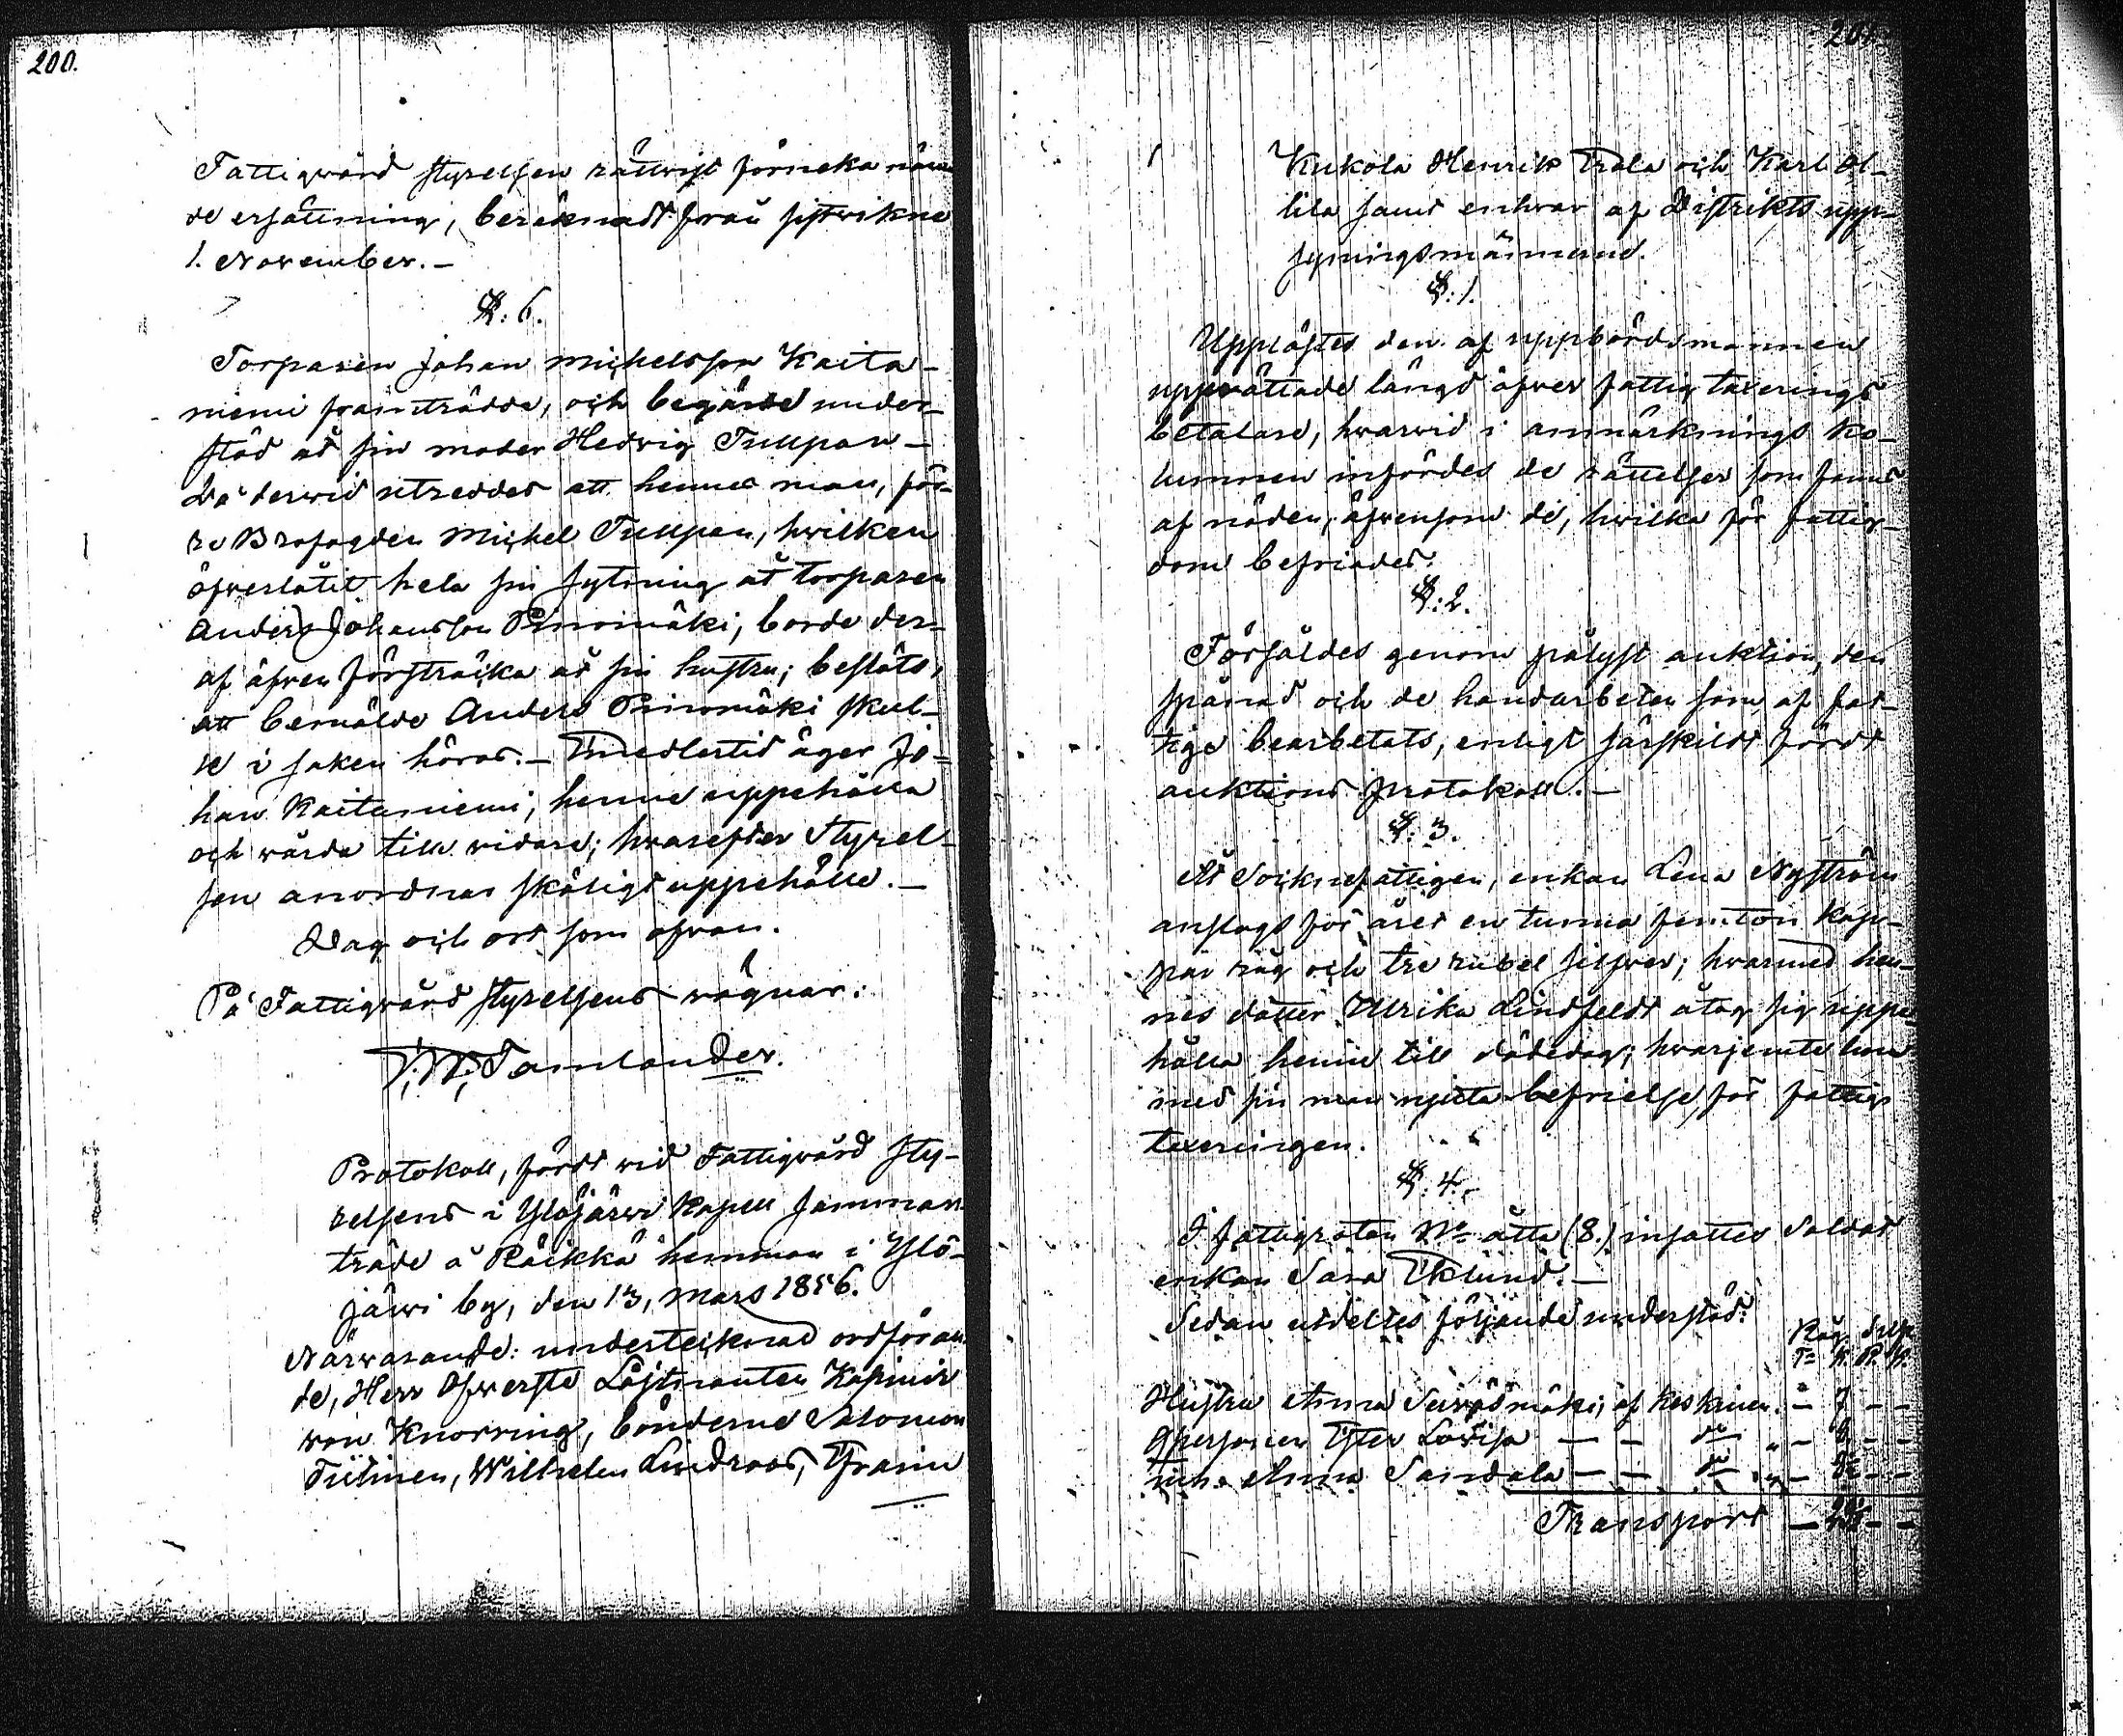 200.
Fattigvård styrelsen rättvist förneka näm
de ersättning, beräknadt från sistvikne
1. November.—
§: 6.
Torparen Johan Michelsson Kaita-
niemi framträdde, och begärde under-
stöd åt sin moder Hedvig Tulipan—
Då dervid utreddes att hennes man, för-
re Brofogden Michel Tulipan, hvilken
öfverlåtit hela sin sytning åt torparen
Anders Johansson Pinomäki, borde der-
af äfven försträcka åt sin hustru; beslöts,
att bemälde Anders Pinomäki skul-
le i saken höras.— Imedlertid äger Jo-
han Kaitaniemi, henne uppehålla
och vårda till vidare; hvarefter Styrel-
sen anordnar skäligt uppehälle.—
Dag och ort som ofvan.
På Fattigvård styrelsens vägnar:
Tamlander.
Protokoll, fördt vid Fattigvård sty-
relsens i Ylöjärvi Kapell samman
träde å Räikkä hemman i Ylö-
järvi by, den 13, Mars 1856.
Närvarande: undertecknad ordföran
de, Herr Öfverste Löjtnanten Kasimir
von Knorring, bönderne Salomon
Tiilinen, Wilhelm Lindroos, Frans
201.
Kukola Henrik Trala och Karl Ol-
lila samt enhvar af Distrikts upp-
syningsmännerne.
§: 1.
Upplästes den af uppbördsmannen
upprättade längd öfver fattig taxerings
betalare, hvarvid i anmärknings ko-
lumnen infördes de rättelser som funnos
af nöden, äfvensom de, hvilka för fattig-
dom befriades.
§: 2.
Försåldes genom pålyst auktion, den
spånad och de handarbeten som af fat-
tige bearbetats, enligt särskildt fördt
auktions protokoll.—
§: 3.
Åt Socknefattigen, enkan Lena Nyström
anslogs för året en tunna femton kap-
par råg och tre rubel silfver; hvarmed hen-
nes dotter Ulrika Lindfeldt åtog sig uppe
hålla henne till dödedag; hvarjemte hon
med sin man njuta befrielse för fattig
taxeringen.
§: 4.
I fattigroten No åtta (8.) insattes Soldat
enkan Sara Eklund.—
Sedan utdeltes följande understöd:
Råg. Silfr
Tr K. R. K.
Hustru Anna Seiväsmäki, af Keskinen. — 7 — —
Gpersonen Lovisa — — do
inh. Anna Sandala — — do
Transport